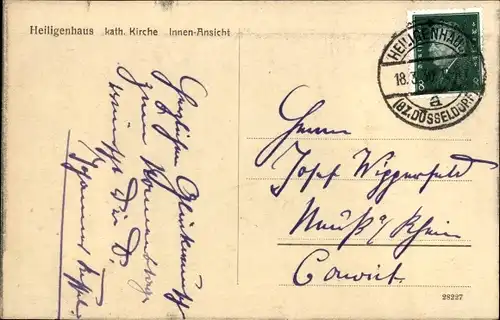 Heiligenhaus kath. Kirche Innen-Ansicht
HEILIGENHAUS
18.3.
a
(BZ. DÜSSELDORF)
8
Herzlichen Glückwunsch
zum Namenstage
wünscht Dir D.
Johannes
Herrn
Josef Wipperfeld
Neuß a/Rhein
Convict.
28227